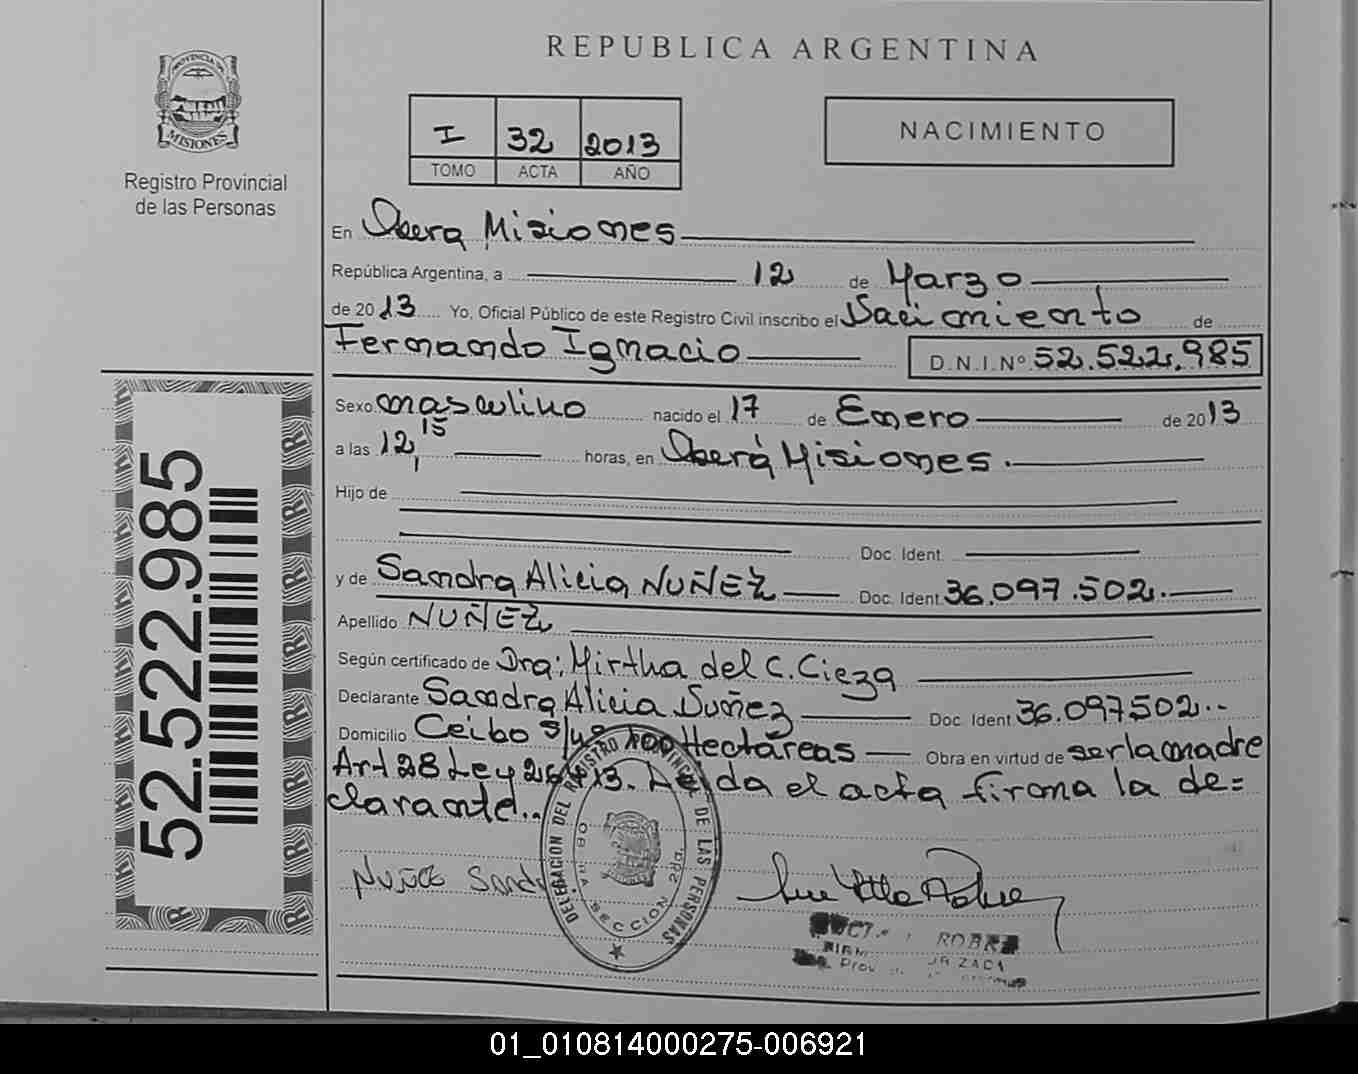 REPUBLICA ARGENTINA
PROVINCIA DE
MISIONES
Registro Provincial
de las Personas
I 32 2013
TOMO ACTA AÑO
NACIMIENTO
En Obera Misiones
República Argentina, a 12 de Marzo
de 2013 Yo, Oficial Público de este Registro Civil inscribo el Nacimiento de
Fernando Ignacio D.N.I.Nº 52.522.985
Sexo masculino nacido el 17 de Enero de 2013
a las 12,15 horas, en Oberá Misiones.
Hijo de
Doc. Ident.
y de Sandra Alicia NUÑEZ Doc. Ident. 36.097.502.
Apellido NUÑEZ
Según certificado de Dra: Mirtha del C. Cieza
Declarante Sandra Alicia Nuñez Doc. Ident 36.097502..
Domicilio Ceibo s/nº 100 Hectáreas Obra en virtud de ser la madre
Art 28 Ley 26413. Leida el acta firma la de=
clarante..
Nuñez Sand
DELEGACION DEL REGISTRO PROVINCIAL DE LAS PERSONAS
OBERA SECCION 2da.
52.522.985
01_010814000275-006921